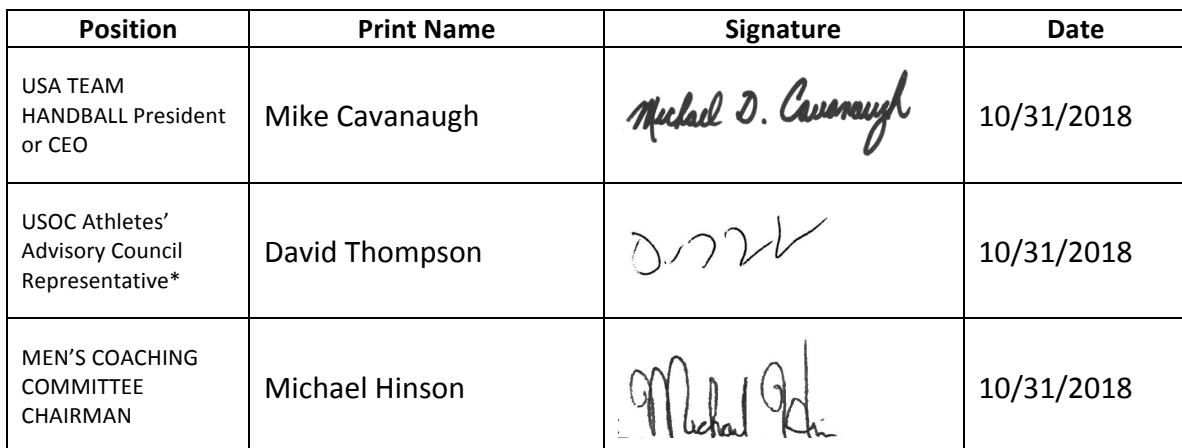 Position Print Name Signature Date
USA TEAM
HANDBALL President
or CEO
Mike Cavanaugh
Michael D. Cavanaugh
10/31/2018
USOC Athletes’
Advisory Council
Representative*
David Thompson
10/31/2018
MEN’S COACHING
COMMITTEE
CHAIRMAN
Michael Hinson
Michael
10/31/2018